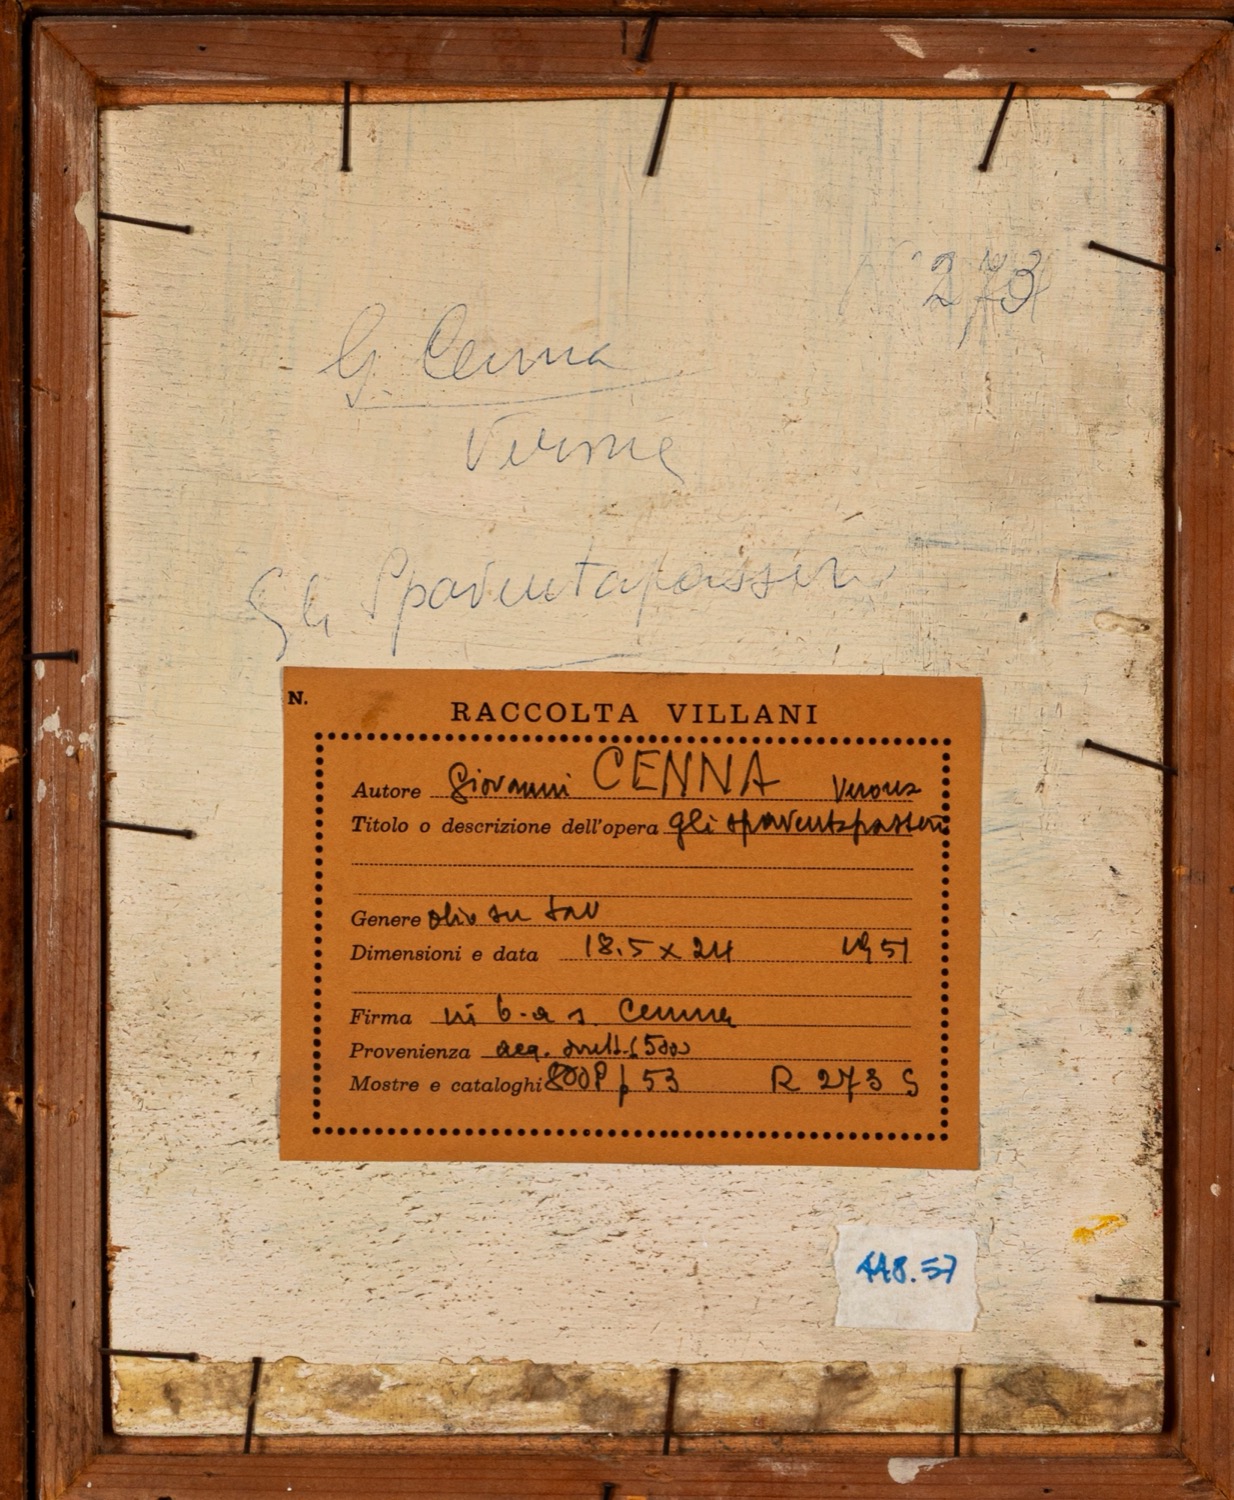 N° 273
G. Cenna
Verona
Gli Spaventapasseri
N.
RACCOLTA VILLANI
Autore Giovanni CENNA Verona
Titolo o descrizione dell'opera gli spaventapasseri
Genere olio su tav
Dimensioni e data 18.5 x 24 1951
Firma in b. a s. Cenna
Provenienza acq.
Mostre e cataloghi 800P p 53 R 273 S
448.57